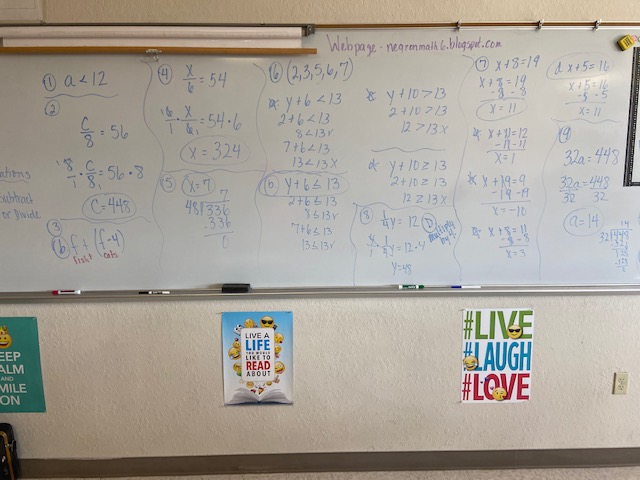 Webpage - negronmath6.blogspot.com
① a < 12
②
c/8 = 56
8/1 · c/8 = 56 · 8
c = 448
ations
subtract
or Divide
③
ⓑ f + (f-4)
fish cats
④ x/6 = 54
6/1 · x/6 = 54 · 6
x = 324
⑤ x = 7
7
48)336
336
0
⑥ (2,3,5,6,7)
a. y + 6 < 13
2 + 6 < 13
8 < 13 ✓
7 + 6 < 13
13 < 13 x
ⓑ y + 6 ≤ 13
2 + 6 ≤ 13
8 ≤ 13 ✓
7 + 6 ≤ 13
13 ≤ 13 ✓
y + 10 > 13
2 + 10 > 13
12 > 13 x
d. y + 10 ≥ 13
2 + 10 ≥ 13
12 ≥ 13 x
⑧ 1/4 y = 12 Ⓓ
multiply by 4
4/1 · 1/4 y = 12 · 4
y = 48
⑦ x + 8 = 19
x + 8 = 19
- 8 - 8
x = 11
x + 11 = 12
- 11 - 11
x = 1
x + 19 = 9
- 19 - 19
x = -10
x + 8 = 11
- 8 - 8
x = 3
d. x + 5 = 16
x + 5 = 16
- 5 - 5
x = 11
⑨
32a = 448
32a = 448
32 32
a = 14
14
32)448
KEEP
CALM
AND
SMILE
ON
LIVE A
LIFE
YOU WOULD
LIKE TO
READ
ABOUT
#LIVE
#LAUGH
#LOVE